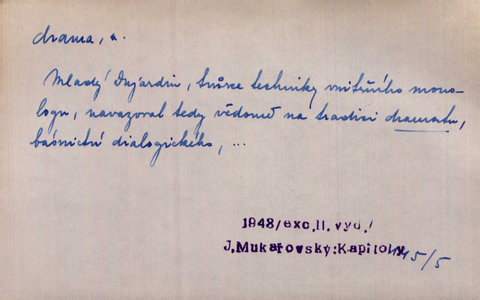 drama, n.
Mladý Dujardin, tvůrce techniky vnitřního mono-
logu, navazoval tedy vědomě na tradici dramatu,
básnictví dialogického, ...
1948/exc.II.vyd./
J.Mukařovský:Kapitoly 145/5